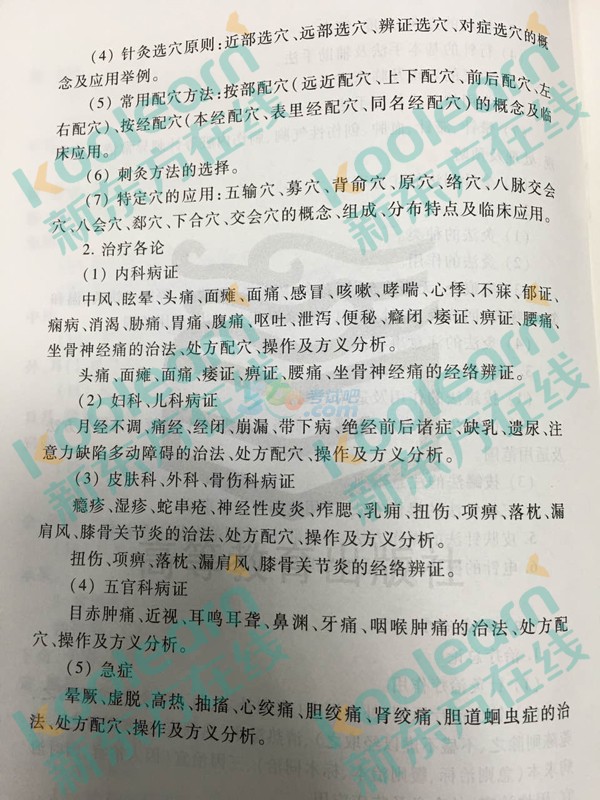 (4) 针灸选穴原则:近部选穴、远部选穴、辨证选穴、对症选穴的概
念及应用举例。
(5) 常用配穴方法:按部配穴(远近配穴、上下配穴、前后配穴、左
右配穴)、按经配穴(本经配穴、表里经配穴、同名经配穴)的概念及临
床应用。
(6) 刺灸方法的选择。
(7) 特定穴的应用:五输穴、募穴、背俞穴、原穴、络穴、八脉交会
穴、八会穴、郄穴、下合穴、交会穴的概念、组成、分布特点及临床应用。
2. 治疗各论
(1) 内科病证
中风、眩晕、头痛、面瘫、面痛、感冒、咳嗽、哮喘、心悸、不寐、郁证、
痫病、消渴、胁痛、胃痛、腹痛、呕吐、泄泻、便秘、癃闭、痿证、痹证、腰痛、
坐骨神经痛的治法、处方配穴、操作及方义分析。
头痛、面瘫、面痛、痿证、痹证、腰痛、坐骨神经痛的经络辨证。
(2) 妇科、儿科病证
月经不调、痛经、经闭、崩漏、带下病、绝经前后诸症、缺乳、遗尿、注
意力缺陷多动障碍的治法、处方配穴、操作及方义分析。
(3) 皮肤科、外科、骨伤科病证
瘾疹、湿疹、蛇串疮、神经性皮炎、痄腮、乳痈、扭伤、项痹、落枕、漏
肩风、膝骨关节炎的治法、处方配穴、操作及方义分析。
扭伤、项痹、落枕、漏肩风、膝骨关节炎的经络辨证。
(4) 五官科病证
目赤肿痛、近视、耳鸣耳聋、鼻渊、牙痛、咽喉肿痛的治法、处方配
穴、操作及方义分析。
(5) 急症
晕厥、虚脱、高热、抽搐、心绞痛、胆绞痛、肾绞痛、胆道蛔虫症的治
法、处方配穴、操作及方义分析。
koolearn
新东方在线
koolearn
新东方在线
koolearn
新东方在线
koolearn
新东方在线
考试吧
高等教育出版社